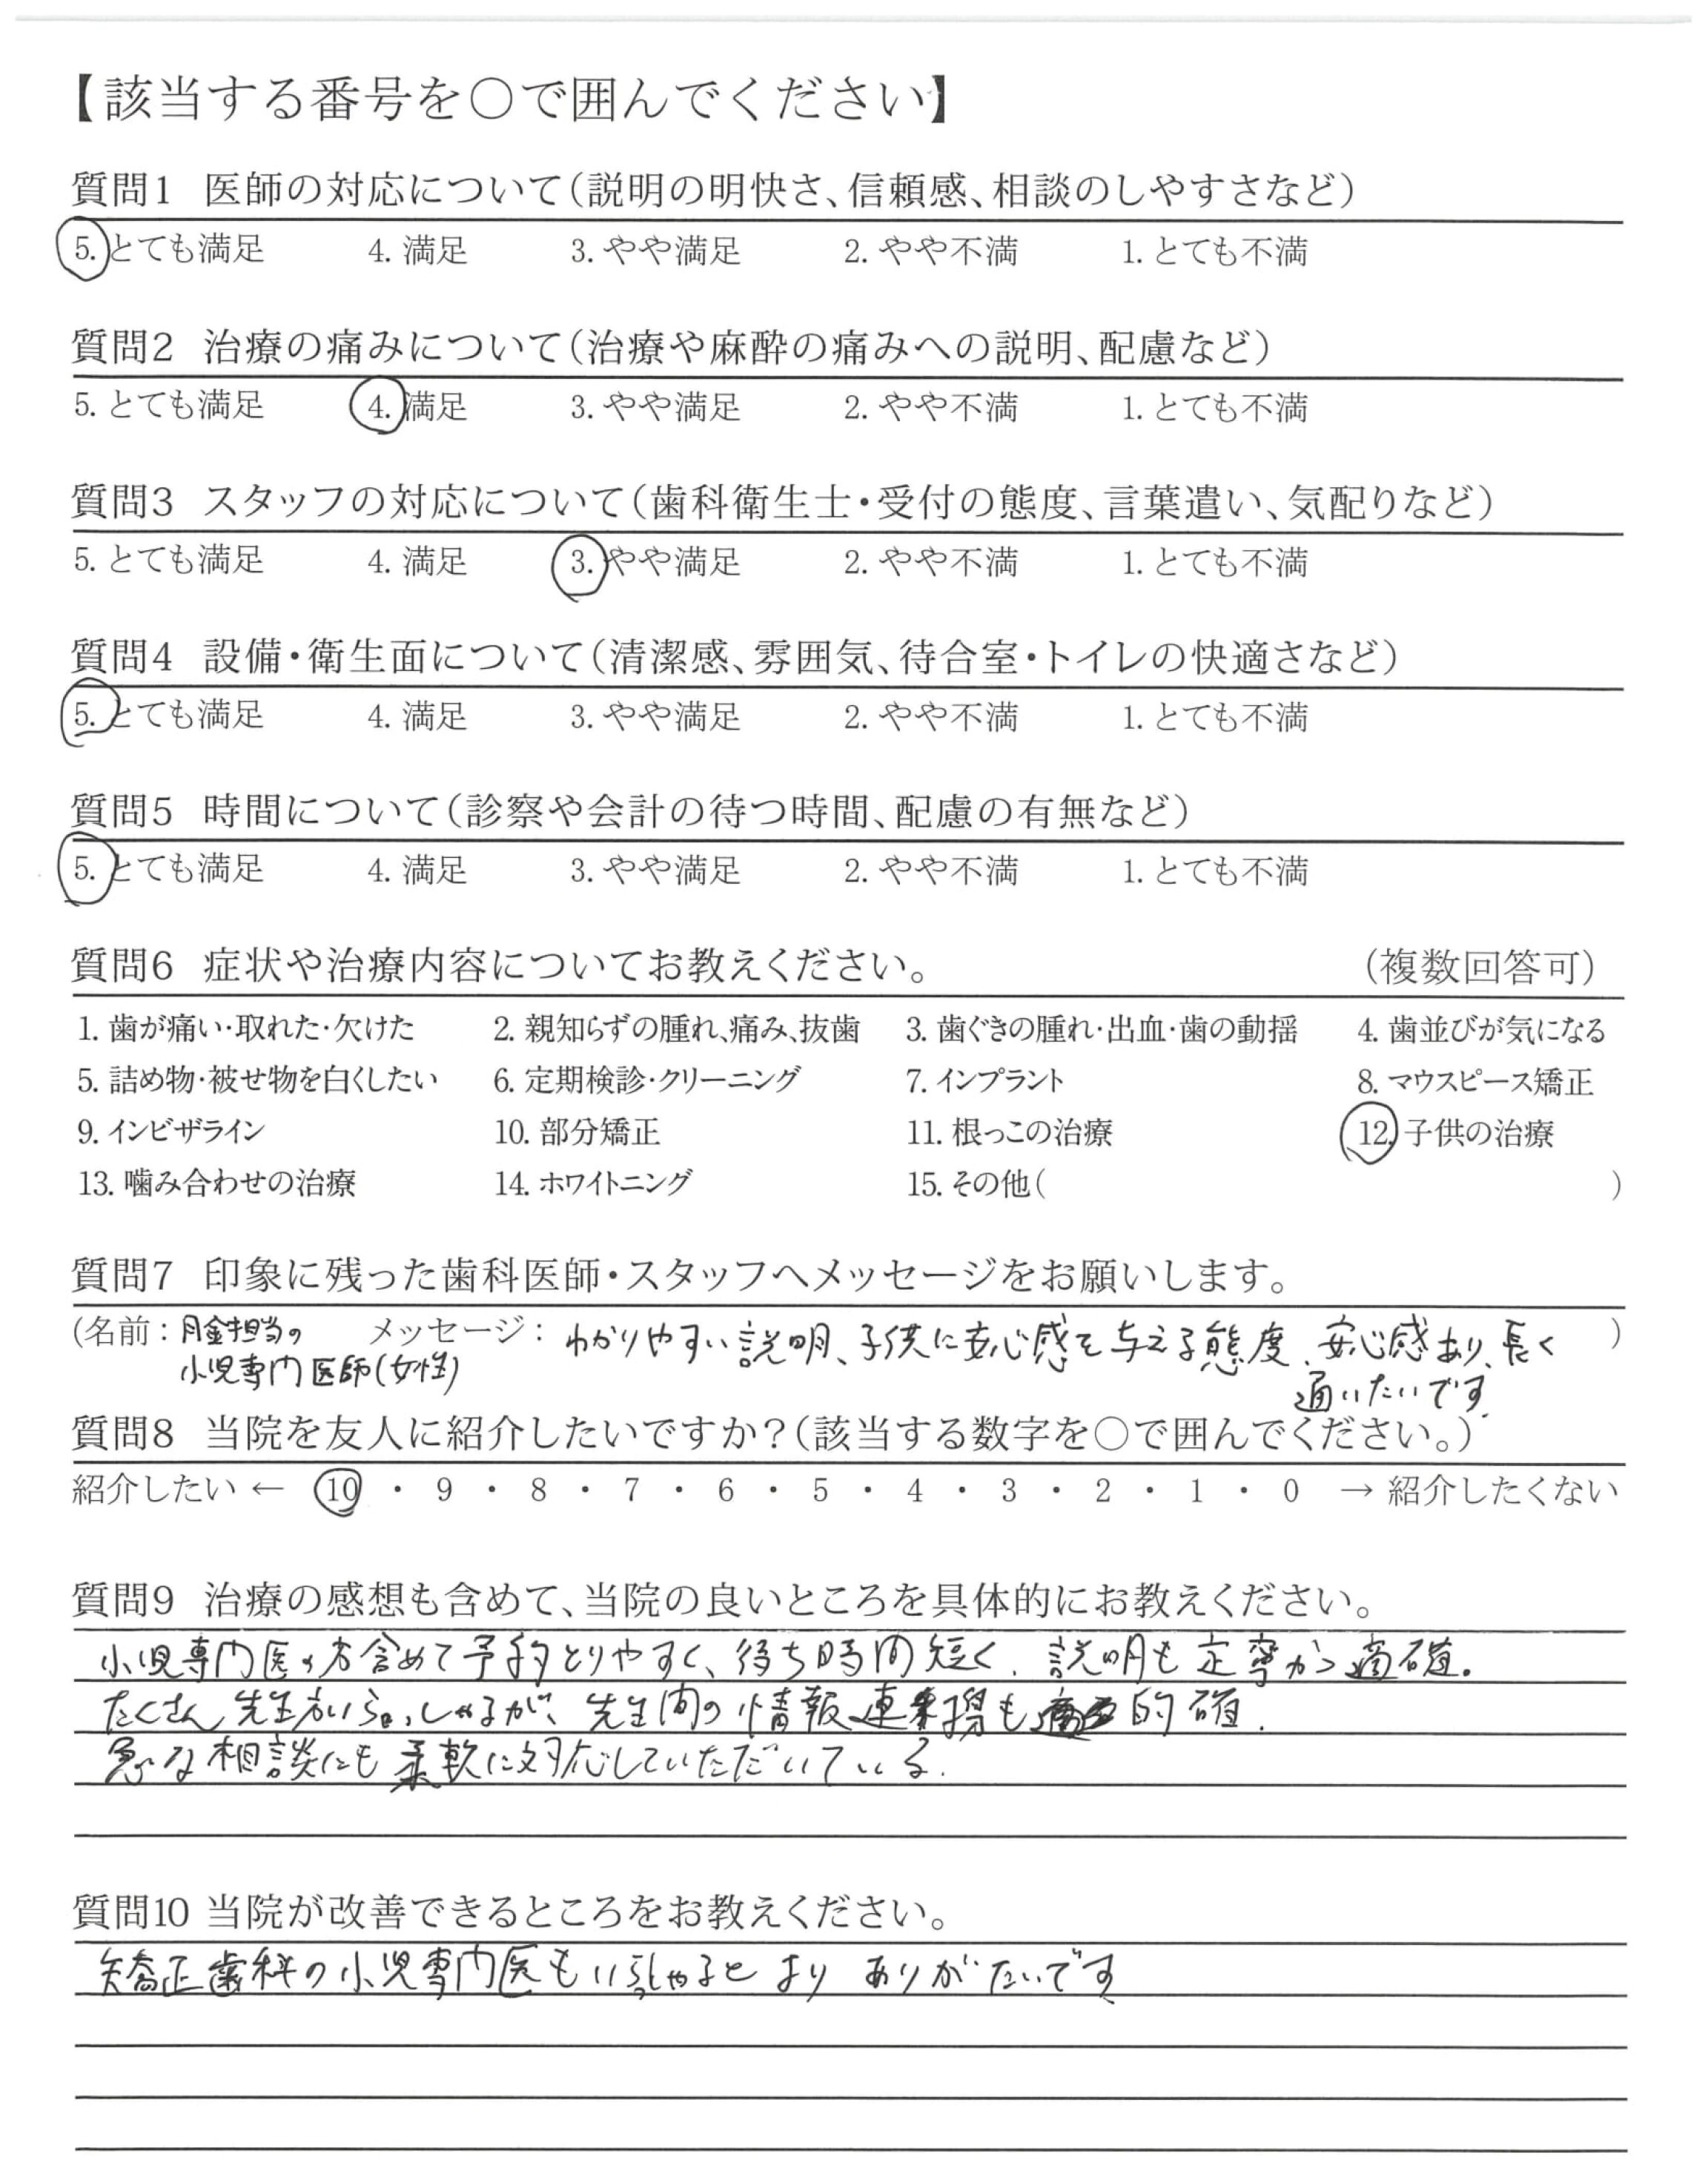 【該当する番号を○で囲んでください】
質問1 医師の対応について（説明の明快さ、信頼感、相談のしやすさなど）
5. とても満足 4. 満足 3. やや満足 2. やや不満 1. とても不満
質問2 治療の痛みについて（治療や麻酔の痛みへの説明、配慮など）
5. とても満足 4. 満足 3. やや満足 2. やや不満 1. とても不満
質問3 スタッフの対応について（歯科衛生士・受付の態度、言葉遣い、気配りなど）
5. とても満足 4. 満足 3. やや満足 2. やや不満 1. とても不満
質問4 設備・衛生面について（清潔感、雰囲気、待合室・トイレの快適さなど）
5. とても満足 4. 満足 3. やや満足 2. やや不満 1. とても不満
質問5 時間について（診察や会計の待つ時間、配慮の有無など）
5. とても満足 4. 満足 3. やや満足 2. やや不満 1. とても不満
質問6 症状や治療内容についてお教えください。 （複数回答可）
1. 歯が痛い・取れた・欠けた 2. 親知らずの腫れ、痛み、抜歯 3. 歯ぐきの腫れ・出血・歯の動揺 4. 歯並びが気になる
5. 詰め物・被せ物を白くしたい 6. 定期検診・クリーニング 7. インプラント 8. マウスピース矯正
9. インビザライン 10. 部分矯正 11. 根っこの治療 12. 子供の治療
13. 噛み合わせの治療 14. ホワイトニング 15. その他（ ）
質問7 印象に残った歯科医師・スタッフへメッセージをお願いします。
（名前：月金担当の メッセージ：わかりやすい説明、子供に安心感を与える態度、安心感あり、長く ）
小児専門医師(女性) 通いたいです.
質問8 当院を友人に紹介したいですか？（該当する数字を○で囲んでください。）
紹介したい ← 10 ・ 9 ・ 8 ・ 7 ・ 6 ・ 5 ・ 4 ・ 3 ・ 2 ・ 1 ・ 0 → 紹介したくない
質問9 治療の感想も含めて、当院の良いところを具体的にお教えください。
小児専門医の方含めて予約とりやすく、待ち時間短く、説明も丁寧かつ適確。
たくさん先生がいらっしゃるが、先生間の情報連携も的確.
急な相談にも柔軟に対応していただいている.
質問10 当院が改善できるところをお教えください。
矯正歯科の小児専門医もいらっしゃるとよりありがたいです